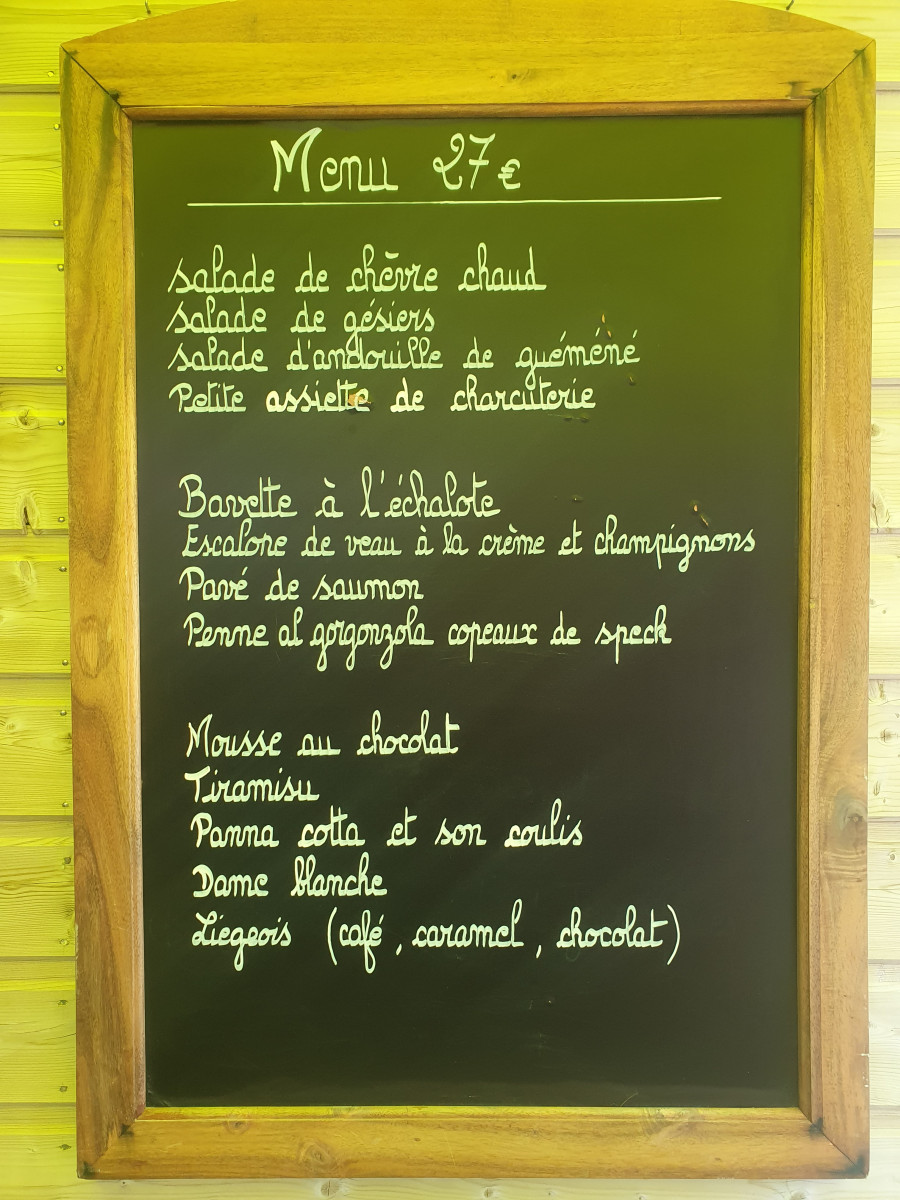 Menu 27€
salade de chèvre chaud
salade de gésiers
salade d'andouille de guéméné
Petite assiette de charcuterie
Bavette à l'échalote
Escalope de veau à la crème et champignons
Pavé de saumon
Penne al gorgonzola copeaux de speck
Mousse au chocolat
Tiramisu
Panna cotta et son coulis
Dame blanche
Liegeois (café, caramel, chocolat)